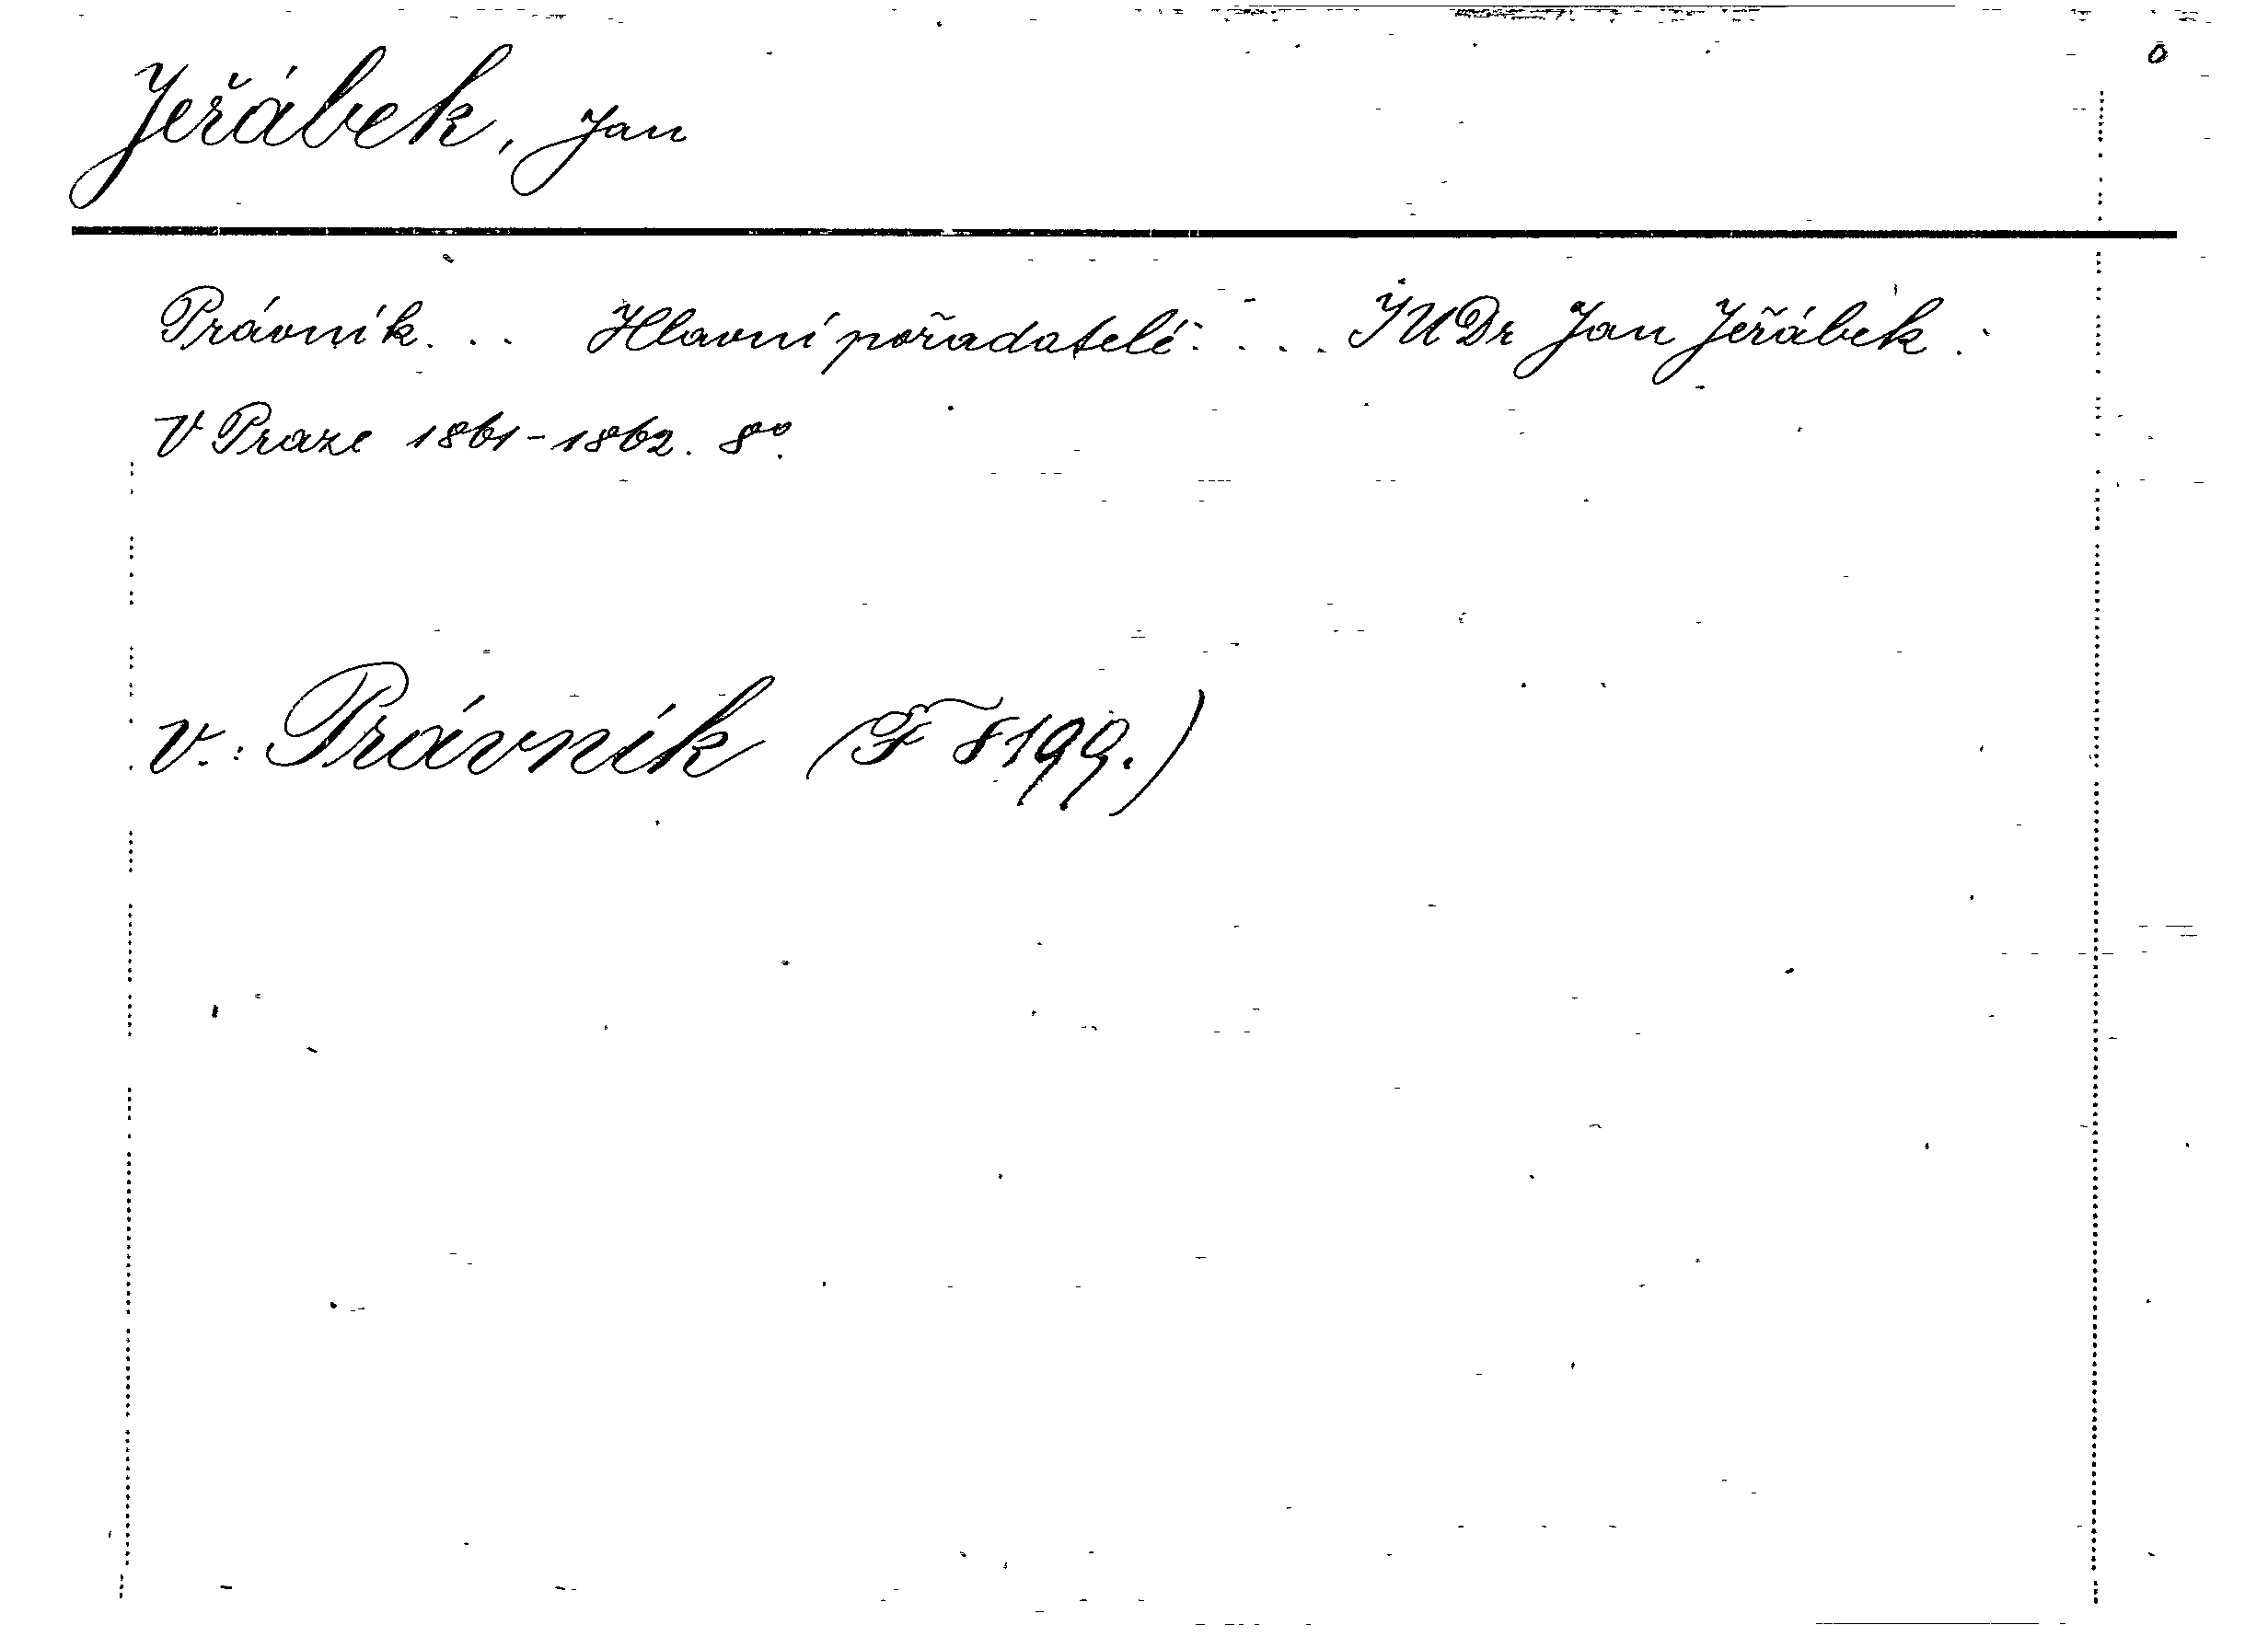 Jeřábek, Jan
Právník... Hlavní pořadatelé: ... JUDr Jan Jeřábek.
V Praze 1861-1862. 8º.
v.: Právník (F 8199.)